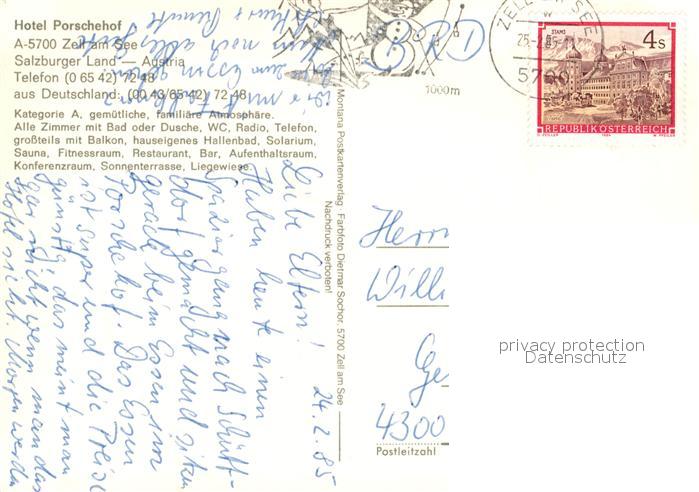 Hotel Porschehof
A-5700 Zell am See
Salzburger Land — Austria
Telefon (0 65 42) 72 48
aus Deutschland: (00 43/65 42) 72 48
Kategorie A, gemütliche, familiäre Atmosphäre.
Alle Zimmer mit Bad oder Dusche, WC, Radio, Telefon,
großteils mit Balkon, hauseigenes Hallenbad, Solarium,
Sauna, Fitnessraum, Restaurant, Bar, Aufenthaltsraum,
Konferenzraum, Sonnenterrasse, Liegewiese.
24.2.85
Liebe Eltern!
Haben heute einen
Spaziergang nach Schütt-
dorf gemacht und sitzen
gerade beim Essen im
Porschehof. Das Essen
ist super und die Preise
günstig, das meint man
gar nicht wenn man das
Hotel sieht. Morgen werden
wir
zum Essen
noch alles Gute
Montana Postkartenverlag · Farbfoto Dietmar Sochor, 5700 Zell am See
Nachdruck verboten!
1000m
ZELL AM SEE
25.-2.85
5700
STAMS
4 S
REPUBLIK ÖSTERREICH
Herrn
Willi
Ge
4300
Postleitzahl
privacy protection
Datenschutz